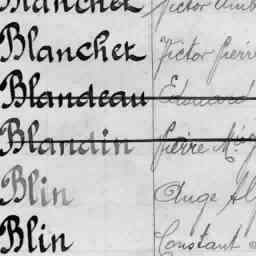 Blanchet Victor
Blanchet Victor Pierre
Blandeau Edouard
Blandin Pierre
Blin Ange
Blin Constant